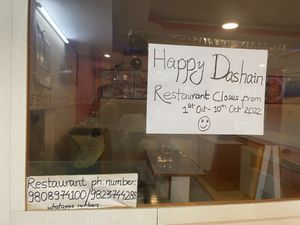 Happy Dashain
Restaurant Closes from
1st Oct - 10th Oct 2022
Restaurant ph. number:
9808974100/9823744288
whatapps numbers